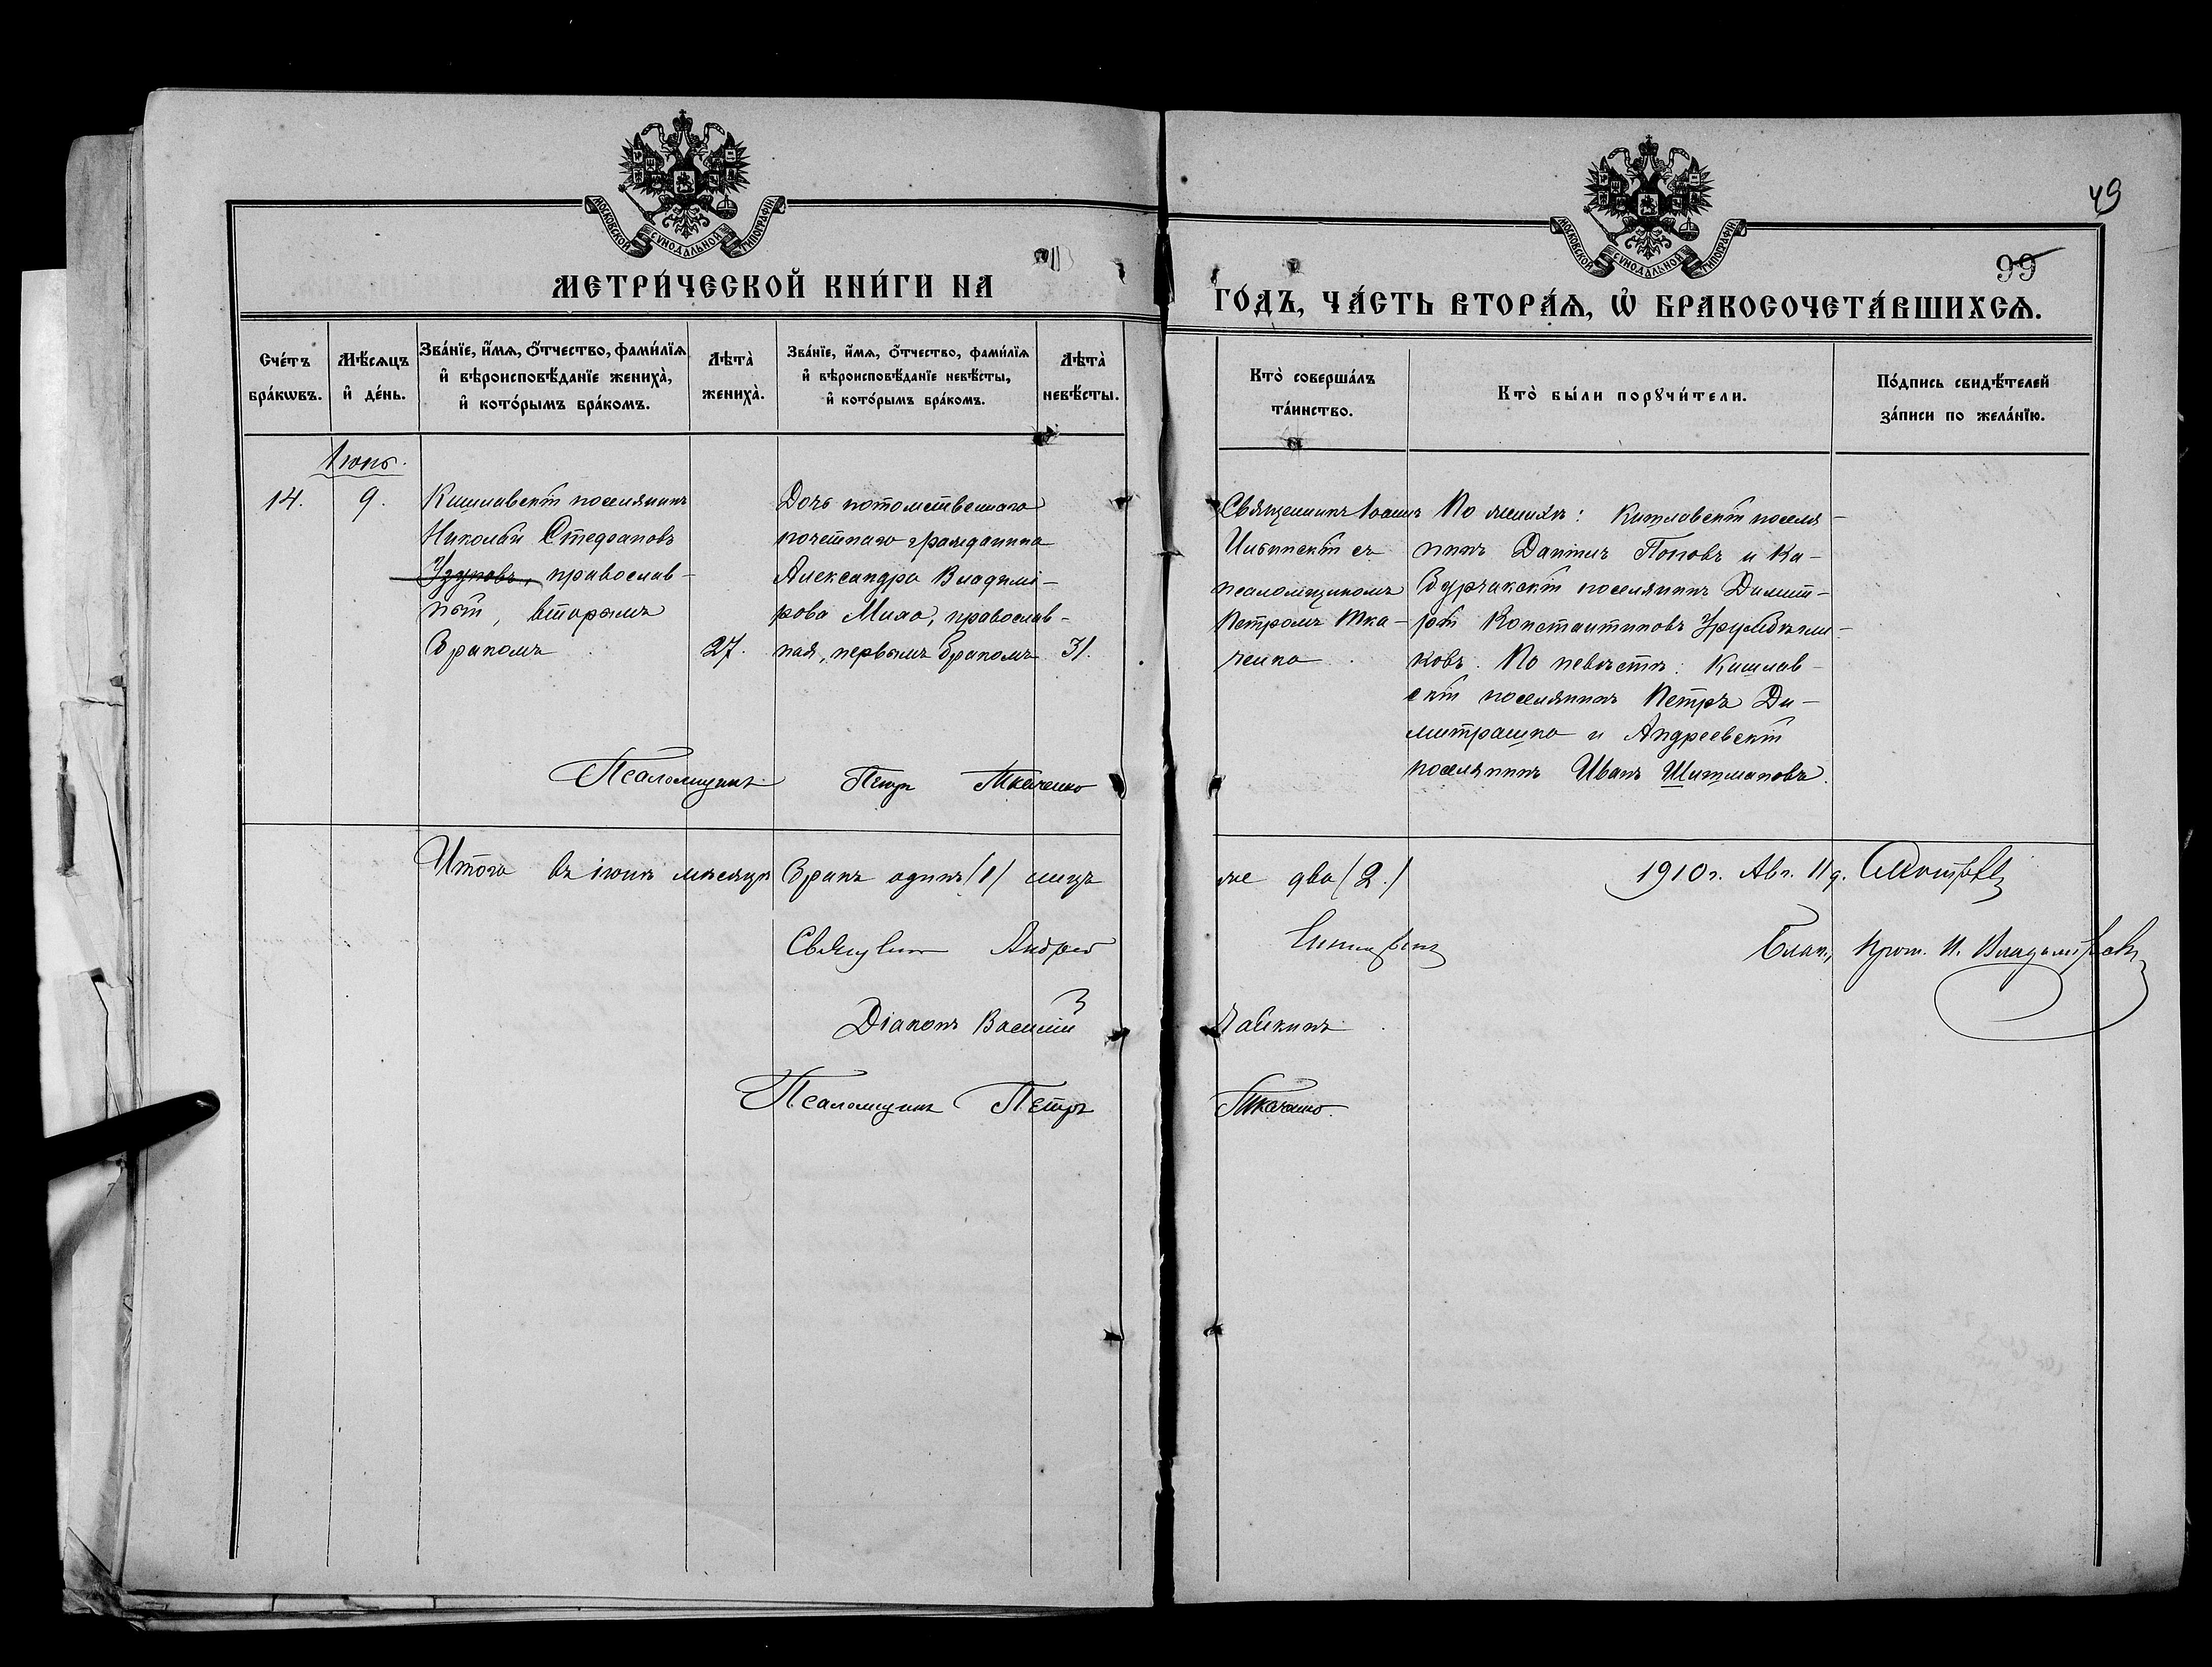 49
99
МОСКОВСКОЙ СѴНОДАЛЬНОЙ ТИПОГРАФІИ
МОСКОВСКОЙ СѴНОДАЛЬНОЙ ТИПОГРАФІИ
МЕТРИ́ЧЕСКОЙ КНИ́ГИ НА
ГО́ДЪ, ЧА́СТЬ ВТОРА́Ѧ, Ѡ҆ БРАКОСОЧЕТА́ВШИХСѦ.
Сче́тъ
бра́кѡвъ.
Мѣ́сѧцъ
и҆ де́нь.
Зва́нїе, и҆́мѧ, ѻ҆́тчество, фами́лїѧ
и҆ вѣроисповѣ́данїе жениха̀,
и҆ кото́рымъ бра́комъ.
Лѣта̀
жениха̀.
Зва́нїе, и҆́мѧ, ѻ҆́тчество, фами́лїѧ
и҆ вѣроисповѣ́данїе невѣ́сты,
и҆ кото́рымъ бра́комъ.
Лѣта̀
невѣ́сты.
Кто̀ соверша́лъ
та́инство.
Кто̀ бы́ли порꙋчи́тели.
По́дпись свидѣ́телей
за́писи по жела́нїю.
Іюнь.
14.
9.
Кишлавскій поселянинъ
Николай Стефановъ
Узуновъ, православ-
ный, вторымъ
бракомъ
27.
Дочь потомственнаго
почетнаго гражданина
Александра Владимі-
рова Мило, православ-
ная, первымъ бракомъ
31.
Священникъ Іоаннъ
Ильинскій съ
псаломщикомъ
Петромъ Тка-
ченко
По женихѣ: Кишлавскій поселя-
нинъ Даніилъ Поповъ и Ка-
бурчакскій поселянинъ Димит-
рій Константиновъ
ковъ. По невѣстѣ: Кишлав-
скій поселянинъ Петръ Ди-
митрашко и Андреевскій
поселянинъ Иванъ Шишмановъ.
Псаломщикъ Петръ Ткаченко
Итого въ іюнѣ мѣсяцѣ бракъ одинъ (1) лицъ
же два (2.)
1910 г. Авг. 11 д.
Священникъ Андрей
Діаконъ Василій Чайкинъ
Псаломщикъ Петръ Ткаченко.
Благ., прот. И.